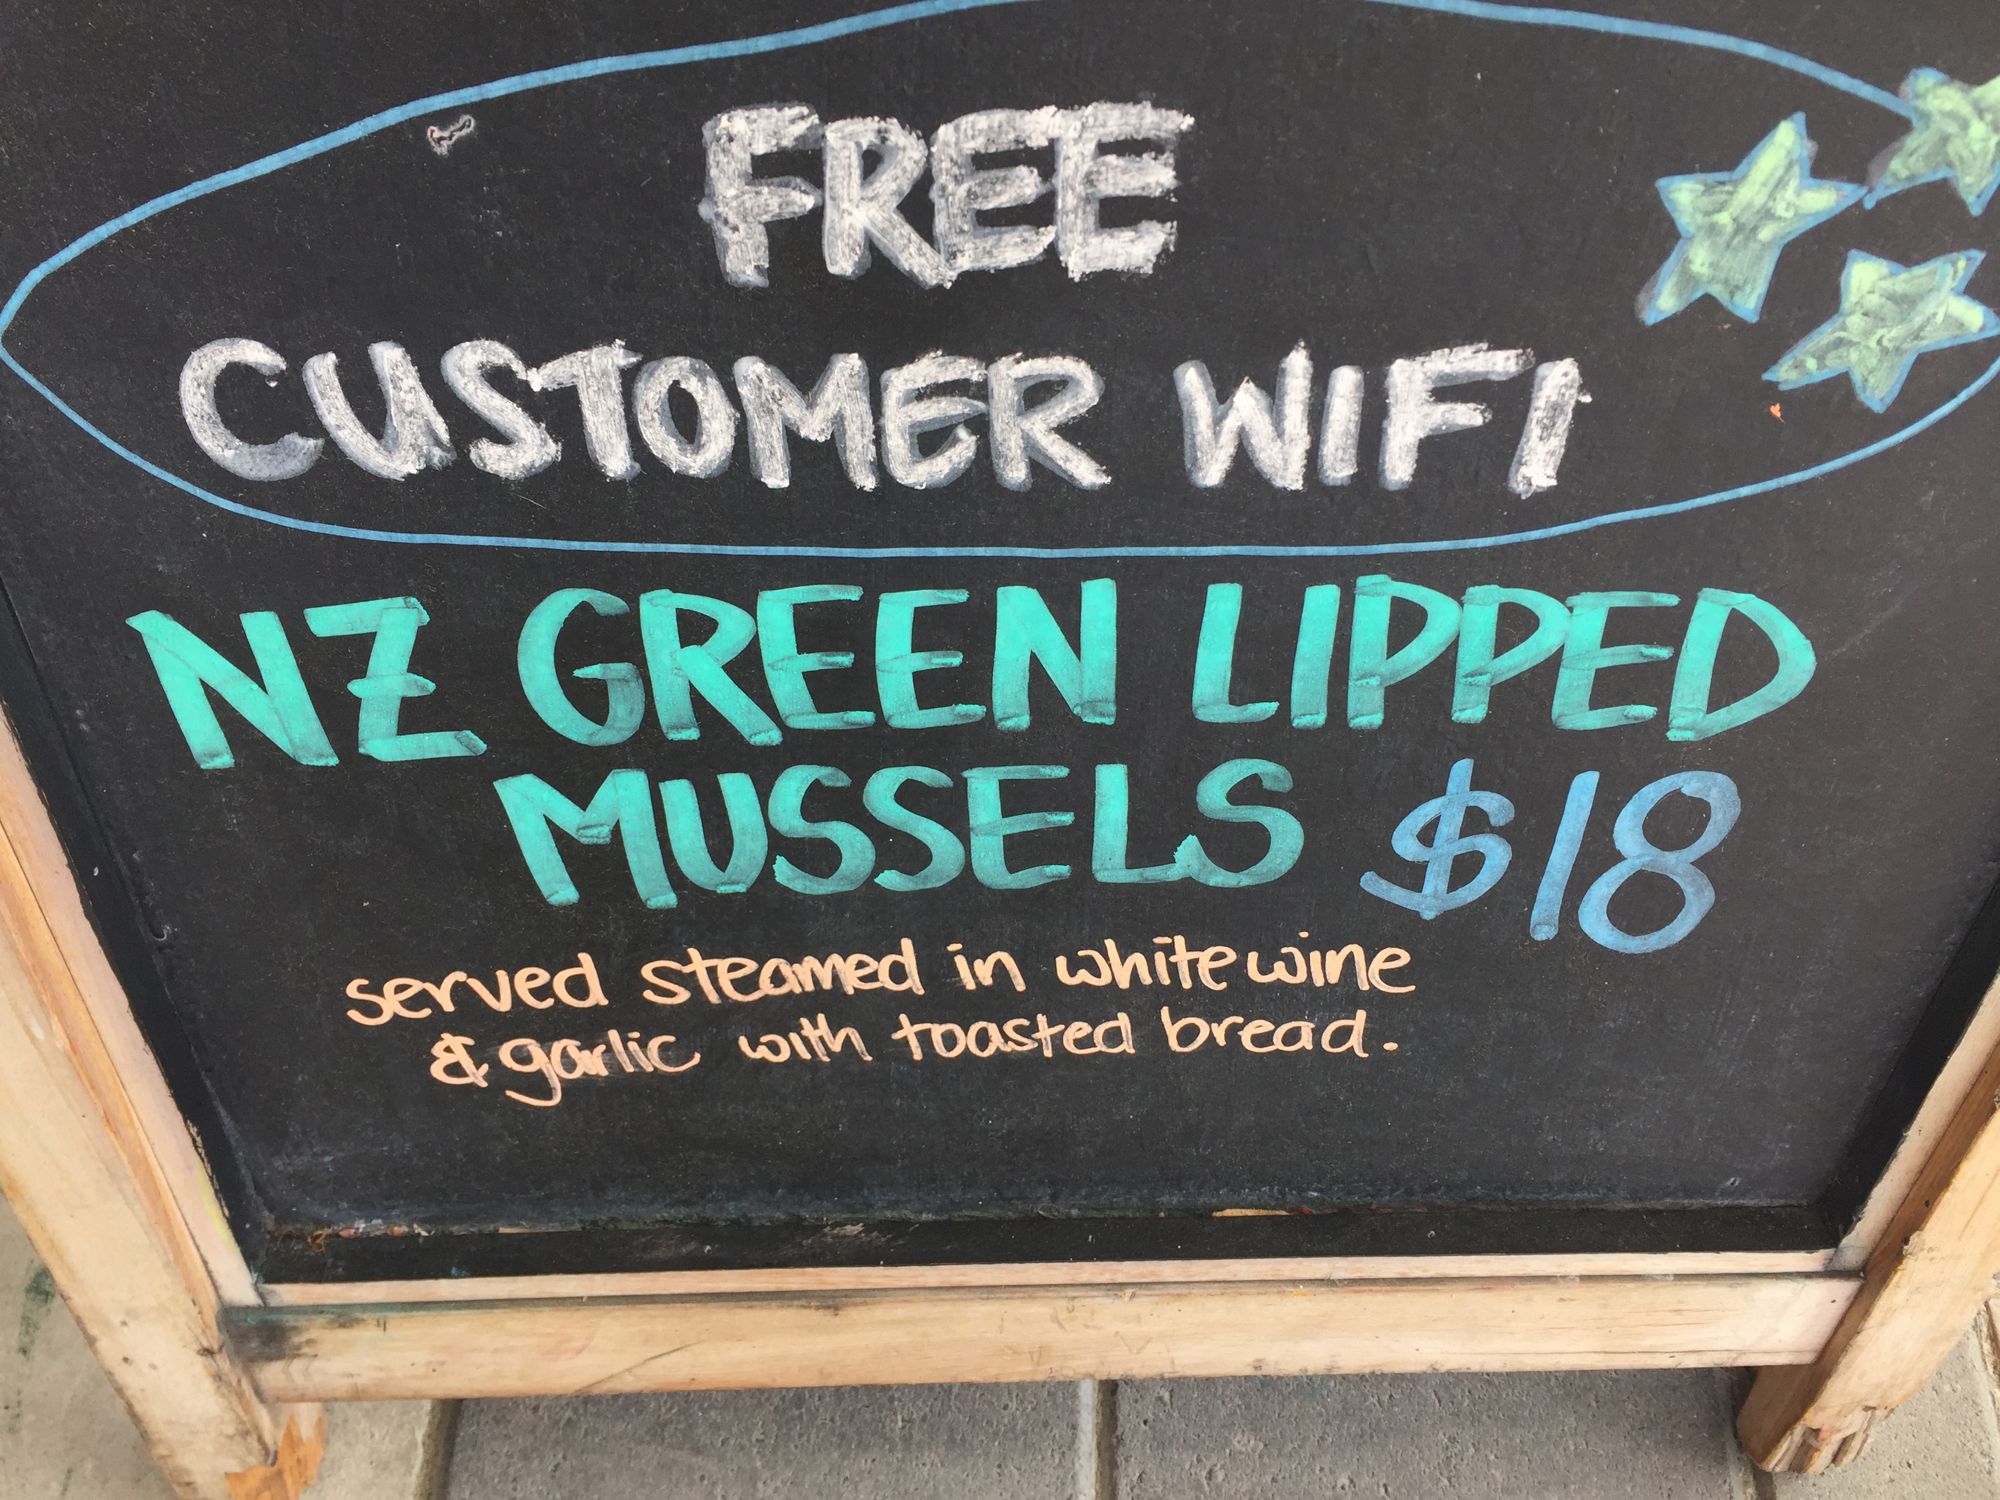 FREE
CUSTOMER WIFI
NZ GREEN LIPPED
MUSSELS $18
served steamed in white wine
& garlic with toasted bread.